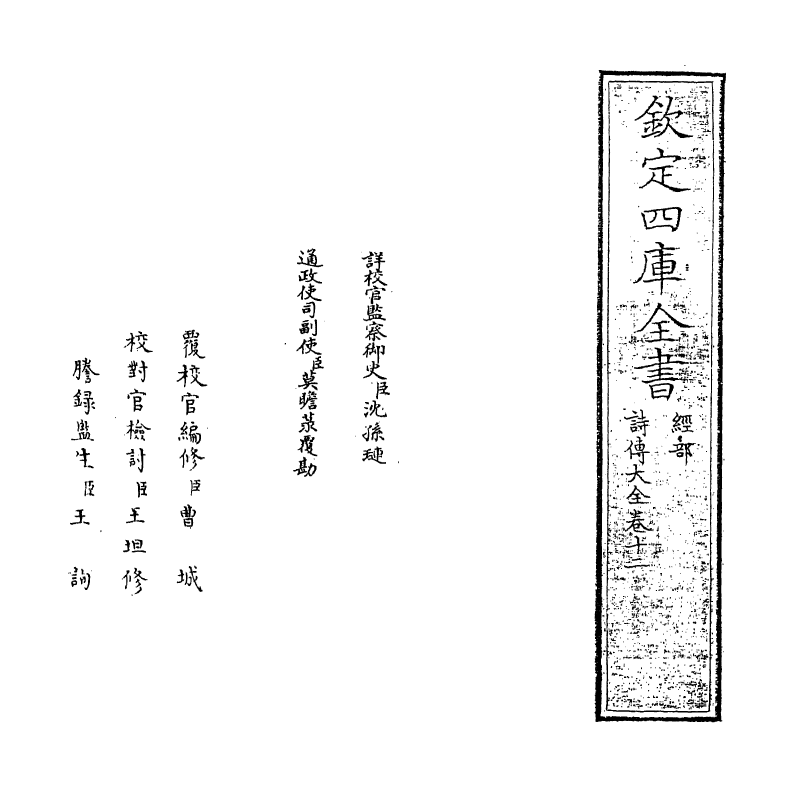 欽定四庫全書
經部
詩傳大全卷十二
詳校官監察御史臣沈孫璉
通政使司副使臣莫瞻菉覆勘
覆校官編修臣曹城
校對官檢討臣王坦修
謄錄監生臣王詢